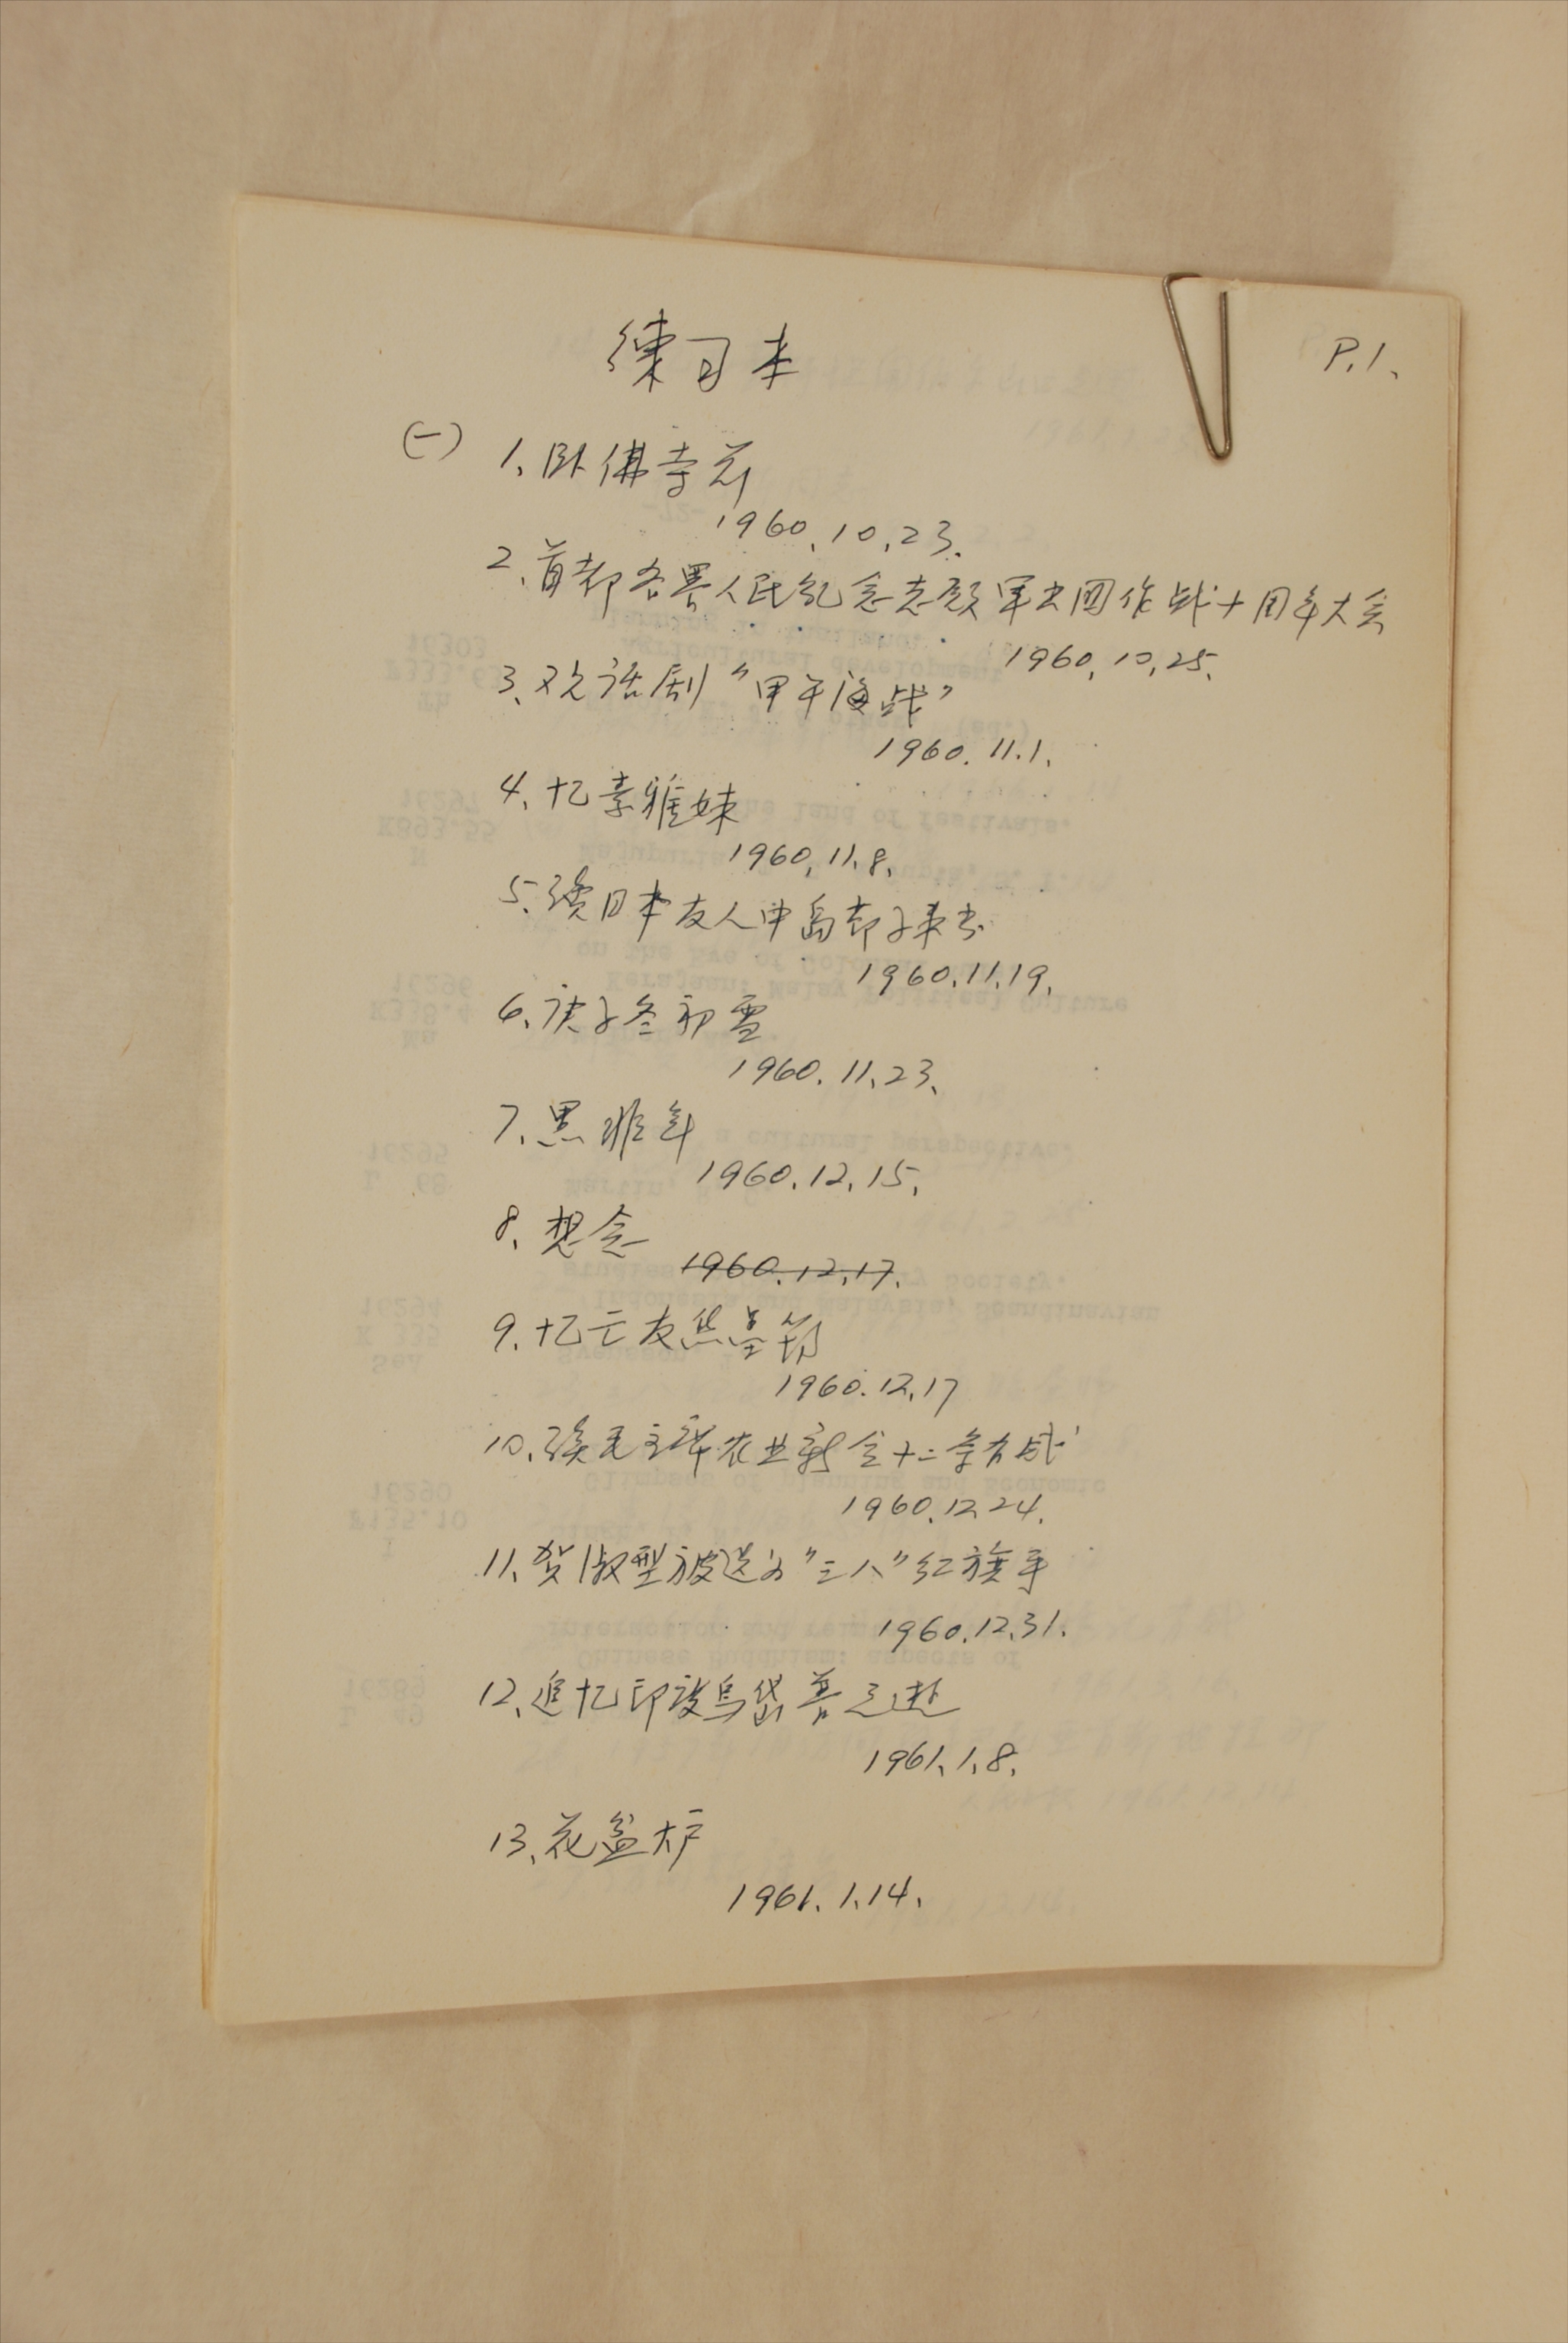 練习本
P.1.
(一) 1、卧佛寺前
1960.10.23.
2、首都各界人民纪念志愿军出国作战十周年大会
1960.10.25.
3、观话剧"甲午海战"
1960.11.1.
4、忆素雅妹
1960.11.8.
5、读日本友人中岛都子来书
1960.11.19.
6、庚子冬初雪
1960.11.23.
7、黑班年
1960.12.15.
8、想念
1960.12.17.
9、忆亡友
1960.12.17
10、读毛主席农业
1960.12.24.
11、贺淑型被选为"三八"红旗手
1960.12.31.
12、追忆印度乌岱
1961.1.8.
13、花盆炉
1961.1.14.